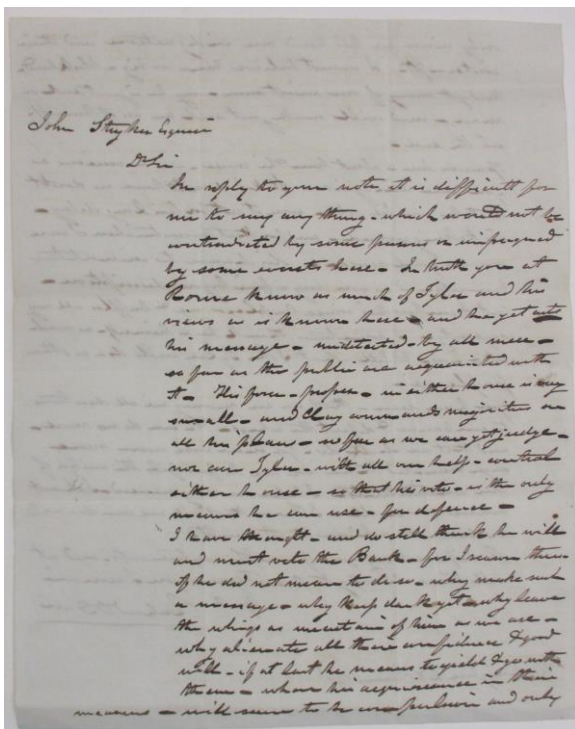 John Stryker Esquire
Dr Sir
In reply to your note, it is difficult for
me to say any thing - which would not be
contradicted by some persons or impugned
by some events here - In truth you at
Rome know as much of Tyler and his
views as is known here - and he yet acts
his message - undetected - by all men -
so far as the public are acquainted with
it - His force - proper - in either house is very
small - and Clay commands majorities on
all his plans - so far as we can yet judge -
nor can Tyler - with all our help - control
either house - so that his veto - is the only
means he can use - for defence -
I have thought - and do still think he will
and must veto the Bank - for I reason thus -
if he did not mean to do so - why make such
a message - why keep dark yet - why leave
the whigs as uncertain of him as we are -
why alienate all their confidence & good
will - if at last he means to yield & go with
them - when his acquiescence in their
measures - will seem to be compulsion and only